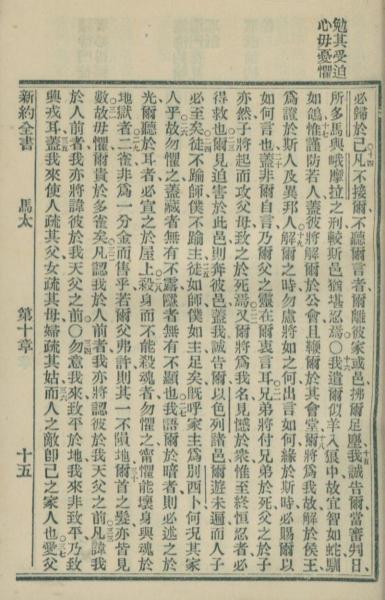 勉其受迫
心毋憂懼
必歸於己凡不接爾不聽爾言者爾離彼家或邑拂爾足塵我誠告爾當審判日
所多馬與峨摩拉之刑較斯邑猶堪忍焉〇我遣爾似羊入狼中故宜智如蛇馴
如鴿惟謹防若人蓋彼將解爾於公會且鞭爾於其會堂爾將爲我故解於侯王
爲證於斯人及異邦人解爾之時勿慮將如之何出言如何緣於斯時必賜爾以
如何言也蓋非爾自言乃爾父之靈在爾衷言耳兄弟將付兄弟於死父之於子
亦然子將起而攻父母致之於死焉又爾將爲我名見憾於衆惟至終恒忍者必
得救也爾見迫害於此邑則奔彼邑蓋我誠告爾以色列諸邑爾遊未遍而人子
必至矣徒不踰師僕不踰主徒如師僕如主足矣既呼家主爲別西卜何况其家
人乎故勿懼之蓋藏者無有不露隱者無有不顯也我語爾於暗者則必述之於
光爾聽於耳者必宣之於屋上殺身而不能殺魂者勿懼之甯懼能壞身與魂於
地獄者二雀非爲一分金而售乎若爾父弗許則其一不隕地爾首之髮亦皆見
數故毋懼爾貴於多雀矣凡認我於人前者我亦將認彼於我天父之前凡諱我
於人前者我亦將諱彼於我天父之前〇勿意我來致平於地我來非致平乃致
興戎耳蓋我來使人疏其父女疏其母婦疏其姑而人之敵卽己之家人也愛父
新約全書 馬太 第十章 十五